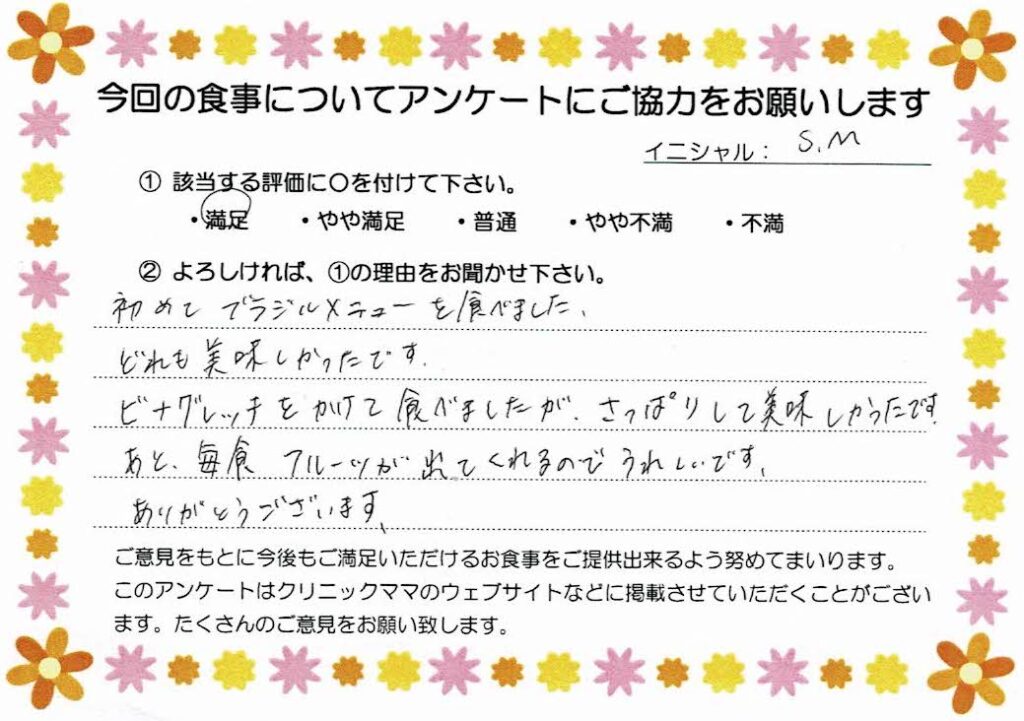 今回の食事についてアンケートにご協力をお願いします
イニシャル： S.M
① 該当する評価に〇を付けて下さい。
・満足 ・やや満足 ・普通 ・やや不満 ・不満
② よろしければ、①の理由をお聞かせ下さい。
初めて ブラジルメニューを食べました。
どれも美味しかったです。
ビナグレッチをかけて食べましたが、さっぱりして美味しかったです。
あと、毎食 フルーツが出てくれるのでうれしいです。
ありがとうございます。
ご意見をもとに今後もご満足いただけるお食事をご提供出来るよう努めてまいります。
このアンケートはクリニックママのウェブサイトなどに掲載させていただくことがござい
ます。たくさんのご意見をお願い致します。